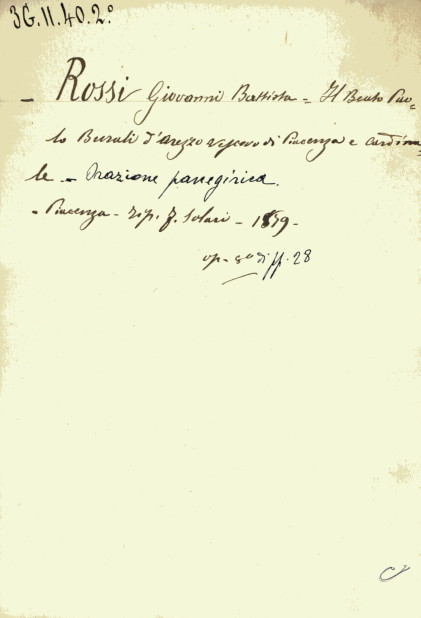 3G.II.40.2º
- Rossi Giovanni Battista = Il Beato Pao=
lo Burali d'Arezzo vescovo di Piacenza e cardina=
le - Orazione panegirica.
- Piacenza - Tip. F. Solari - 1859 -
op - 8º di ff. 28